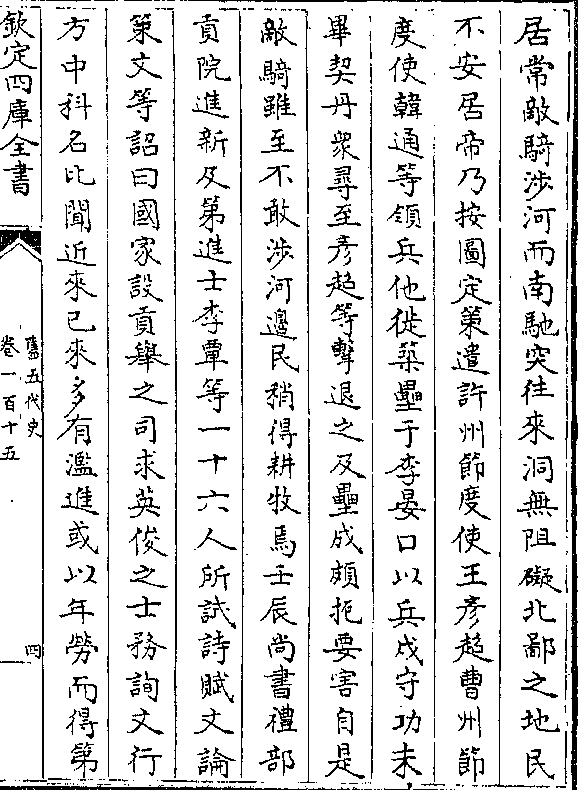 居常敵騎涉河而南馳突往來洞無阻礙北鄙之地民
不安居帝乃按圖定策遣許州節度使王彥超曹州節
度使韓通等領兵他徙築壘于李晏口以兵戍守功未
畢契丹衆尋至彥超等擊退之及壘成頗扼要害自是
敵騎雖至不敢涉河邊民稍得耕牧焉壬辰尚書禮部
貢院進新及第進士李覃等一十六人所試詩賦文論
策文等詔曰國家設貢舉之司求英俊之士務詢文行
方中科名比聞近來已來多有濫進或以年勞而得第
欽定四庫全書
舊五代史
卷一百十五
四